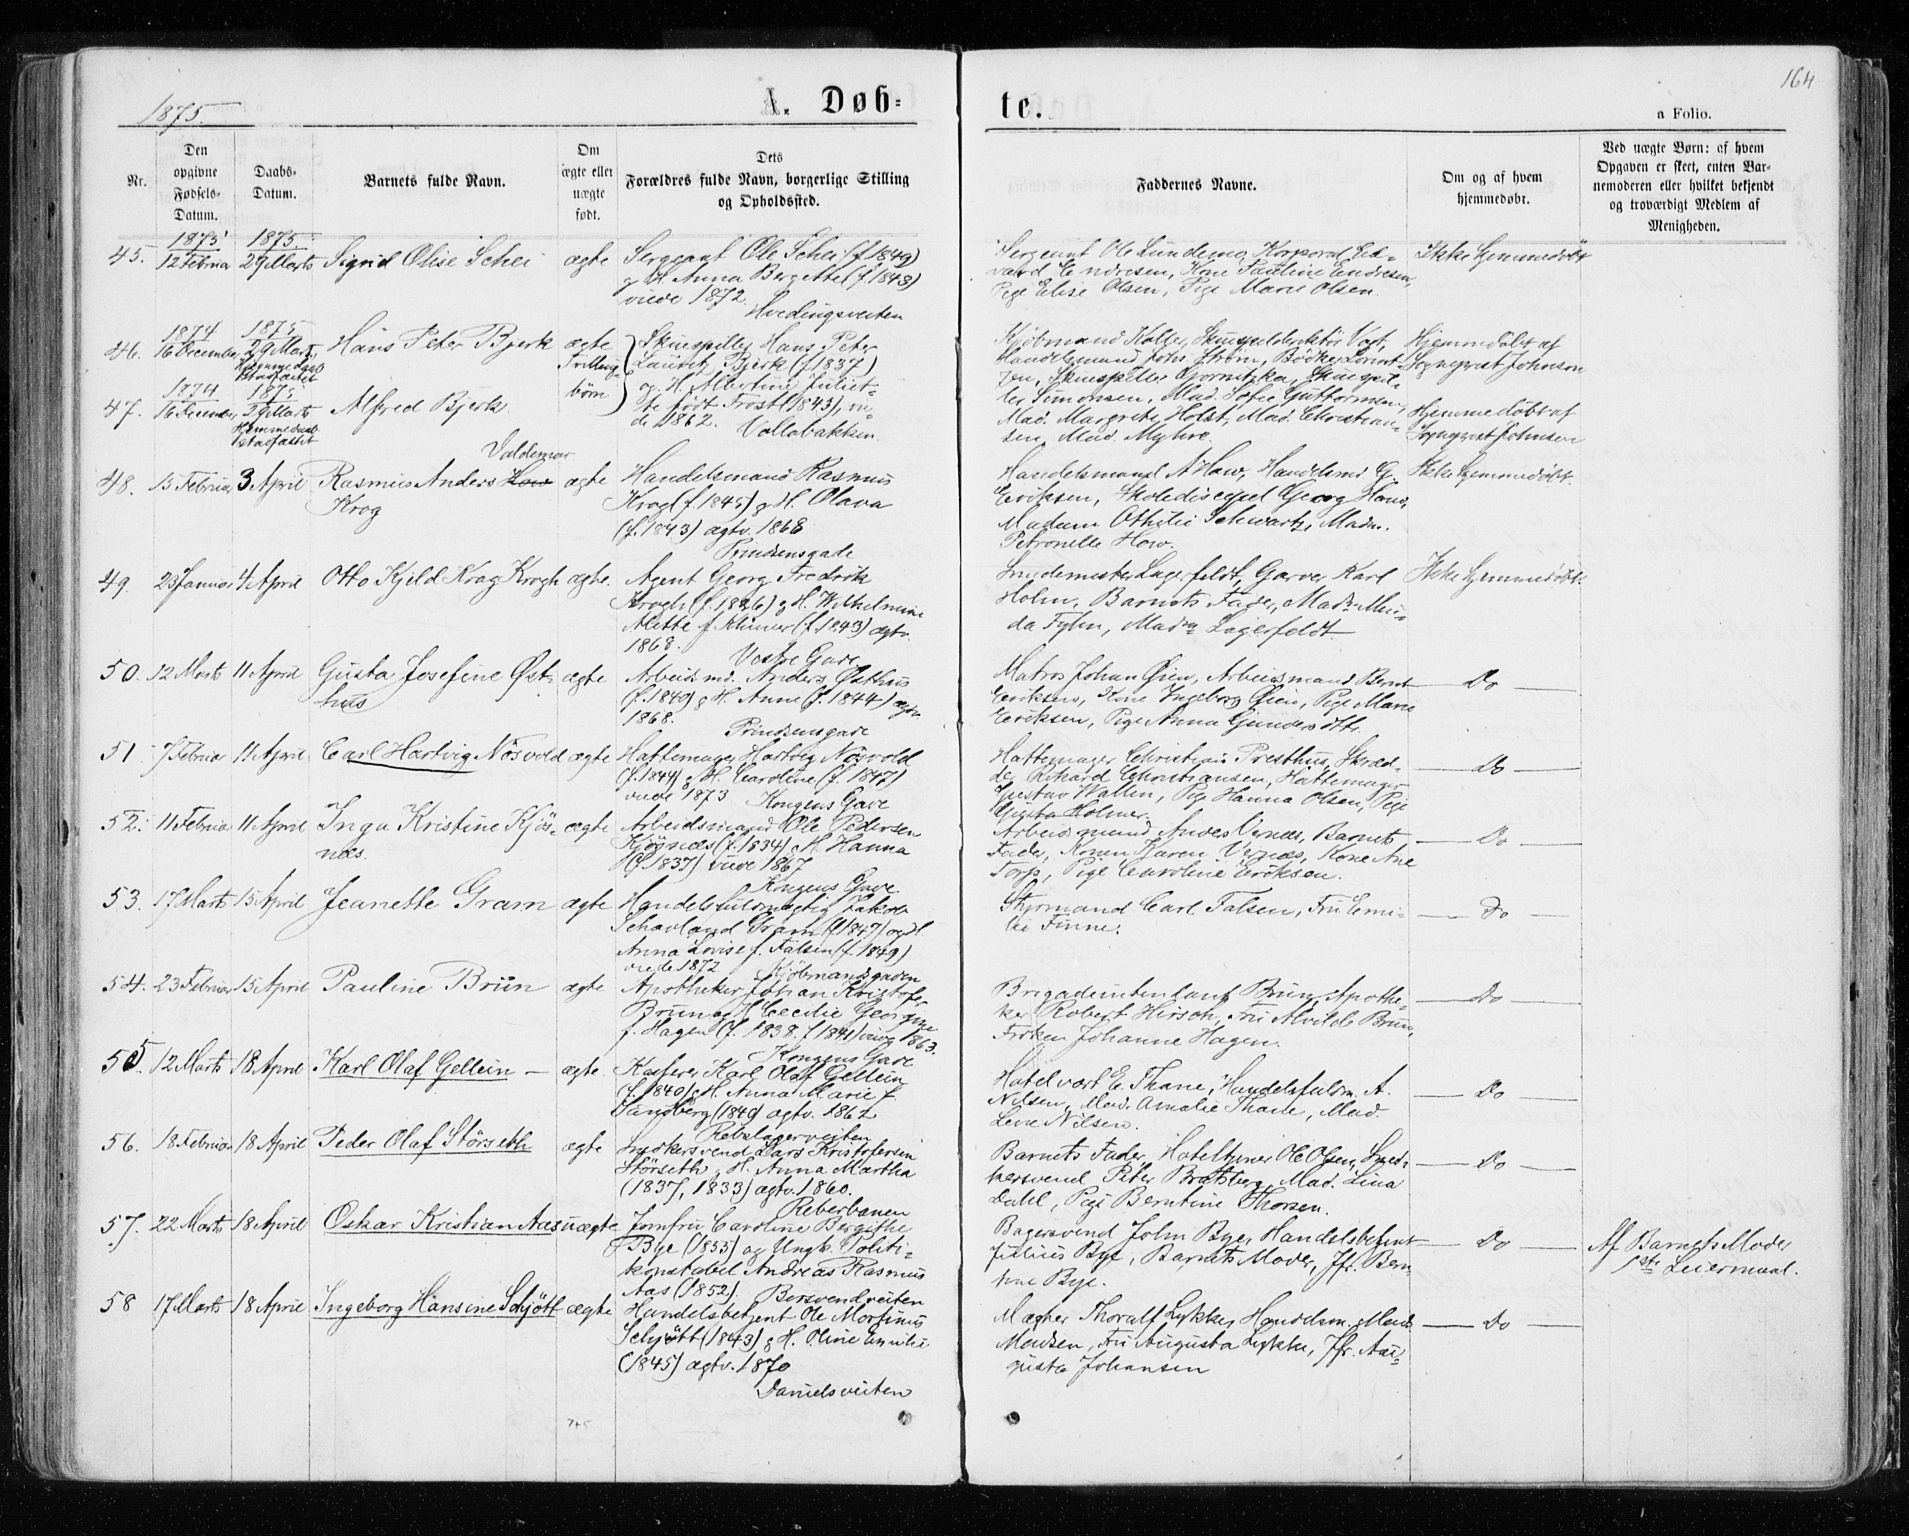 1875.
A. Døb=
te.
164
a Folio.
Nr.
Den opgivne Fødsels-Datum.
Daabs-Datum.
Barnets fulde Navn.
Om ægte eller uægte født.
Dets Forældres fulde Navn, borgerlige Stilling og Opholdssted.
Faddernes Navne.
Om og af hvem hjemmedøbt.
Ved uægte Børn: af hvem Opgaven er skeet, enten Barnemoderen eller hvilket bekjendt og troværdigt Medlem af Menigheden.
1875 1875.
45. 12 Februar 29 Marts Sigrid Olise Schei ægte Sergeant Ole Schei (f. 1849)
g. H. Anna Bergette (f. 1848)
viede 1872.
Hvedingsveiten
Sergeant Ole Lundemo, Korporal Ed-
vard Endresen, Kone Pauline Endresen,
Pige Elise Olsen, Pige Marie Olsen.
Ikke hjemmedøbt
1874 1875
46. 16 December 29 Marts Hans Peter Bjerk ægte
Hjemmedaab
Stadfæstet
Tvilling
børn
Skuespiller Hans Peter
Lauritz Bjerk (f. 1837)
og H. Albertine Juliet-
te født Frost (1843), vi-
de 1862. Vollabakken.
Kjøbmand Koller, Skuespildirektør Vogt,
Handelsmand Joh. Strøm, Bødker Lorent-
zen, Skuespiller Gjørnitzka, Skuespil-
ler Simonsen, Mad. Sofie Guttormsen,
Mad. Margrete Holst, Mad. Christian-
sen, Mad. Myhre.
Hjemmedøbt af
Sognepræst Johnson
1874 1875
47. 16 December 29 Marts Alfred Bjerk.
Hjemmedaab
Stadfæstet
Hjemmedøbt af
Sognepræst Johnsen
Valdemar
48. 15 Februar 3 April Rasmus Anders How ægte
Krog
Handelsmand Rasmus
Krog (f. 1845) g. H. Olava
(f. 1843) ægtv. 1868
Prindsensgade
Handelsmand A. How, Handelsmd G.
Eriksen, Skolediscipel Georg How,
Madam Othilie Schwartz, Madm.
Petronelle How.
Ikke hjemmedøbt.
49. 23 Januar 4 April Otto Kjeld Krag Krogh ægte.
Agent Georg Fredrik
Krogh (f. 1826) g. H. Wilhelmine
Alette f. Klüwer (f. 1843) ægtv.
1868. Vestre Gade
Smedemester Lagerfeldt, Garver Karl
Holm, Barnets Fader, Madm Min-
da Tyhn, Madm Lagerfeldt
Ikke hjemmedøbt.
50. 12 Marts 11 April Gusta Josefine Øst- ægte
hus
Arbeidsmd. Anders Østhus
(f. 1840) g. H. Anne (f. 1844) ægtv
1868. Prindsensgade
Matros Johan Øien, Arbeidsmand Bernt
Eriksen, Kone Ingeborg Øien, Pige Marie
Eriksen, Pige Anna Gundersdtt.
— Do —
51. 7 Februar 11 April Carl Hartvig Nøsvold ægte
Hattemager Hartvig Nøsvold
(f. 1844) g. H. Caroline (f. 1847)
viede 1873 Kongens Gade
Hattemager Christian Presthus, Skræd-
der Richard Christiansen, Hattemager
Gustav Wallin, Pige Hanna Olsen, Pige
Gusta Holmer.
— Do —
52. 11 Februar 11 April Inga Kristine Kjøs- ægte
næs.
Arbeidsmand Ole Pedersen
Kjøsnæs (f. 1834) g. H. Hanna
(f. 1837) viede 1867
Kongens Gade.
Arbeidsmand Anders Vernæs, Barnets
Fader, Konen Karen Vernæs, Kone Ane
Torp, Pige Caroline Eriksen.
— Do —
53. 17 Marts 15 April Jeanette Gram ægte
Handelsfuldmægtig Jakob
Schavland Gram (f. 1847) og H.
Anna Lovise f. Falsen (f. 1849)
viede 1872 Kjøbmandsgaden
Styrmand Carl Falsen, Fru Emi-
lie Finne.
— Do —
54. 23 Februar 15 April Pauline Brün ægte
Apotheker Johan Kristofer
Brun og H. Cecilie Georgine
f. Hagen (f. 1838. f. 1841) viede 1863.
Kongens Gade
Brigadeintendant Brun, Apothe-
ker Robert Hirsch, Fru Alvilde Brun,
Frøken Johanne Hagen.
— Do —
55. 12 Marts 18 April Karl Olaf Gellein — ægte.
Kasserer Karl Olaf Gellein
(f. 1840) g. H. Anna Marie f.
Sandberg (1840) ægtv. 1862
Rebslagerveiten
Hotelvært E. Thane, Handelsfuldm. A.
Nilsen, Mad. Amalie Thane, Mad.
Lene Nilsen.
— Do —
56. 18 Februar 18 April Peder Olaf Størseth ægte
Snedkersvend Lars Kristofersen
Størseth g. H. Anna Martha
(1837, 1833) ægtv. 1860.
Reberbanen
Barnets Fader, Hoteltjener Ole Olsen, Sned-
kersvend Peter Bratsberg, Mad. Lina
Dahl, Pige Berntine Thorsen.
— Do —
57. 22 Marts 18 April Oskar Kristian Aas uægte
Jomfru Caroline Bergithe
Bye (1855) og Ungk. Politi-
konstabel Andreas Rasmus
Aas (1852). Bersvendveiten
Bagersvend John Bye, Handelsbetjent
Julius Bye, Barnets Moder, Jfr. Bern-
tine Bye.
— Do —
Af Barnets Moder
1ste Leiermaal.
58 17 Marts 18 April Ingeborg Hansine Schjøtt ægte
Handelsbetjent Ole Martinus
Schjøtt (1843) g. H. Oline Emilie
(1845) ægtv. 1870
Danielsveiten
Mægler Thoralf Lykke, Handelsm. Mads
Madsen, Fru Augusta Lykke, Jfr. Au-
gusta Johansen
— Do —